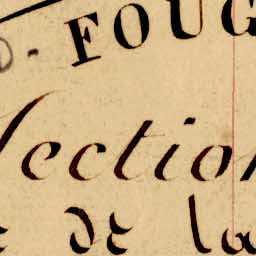 D. FOUG
Section
e de la